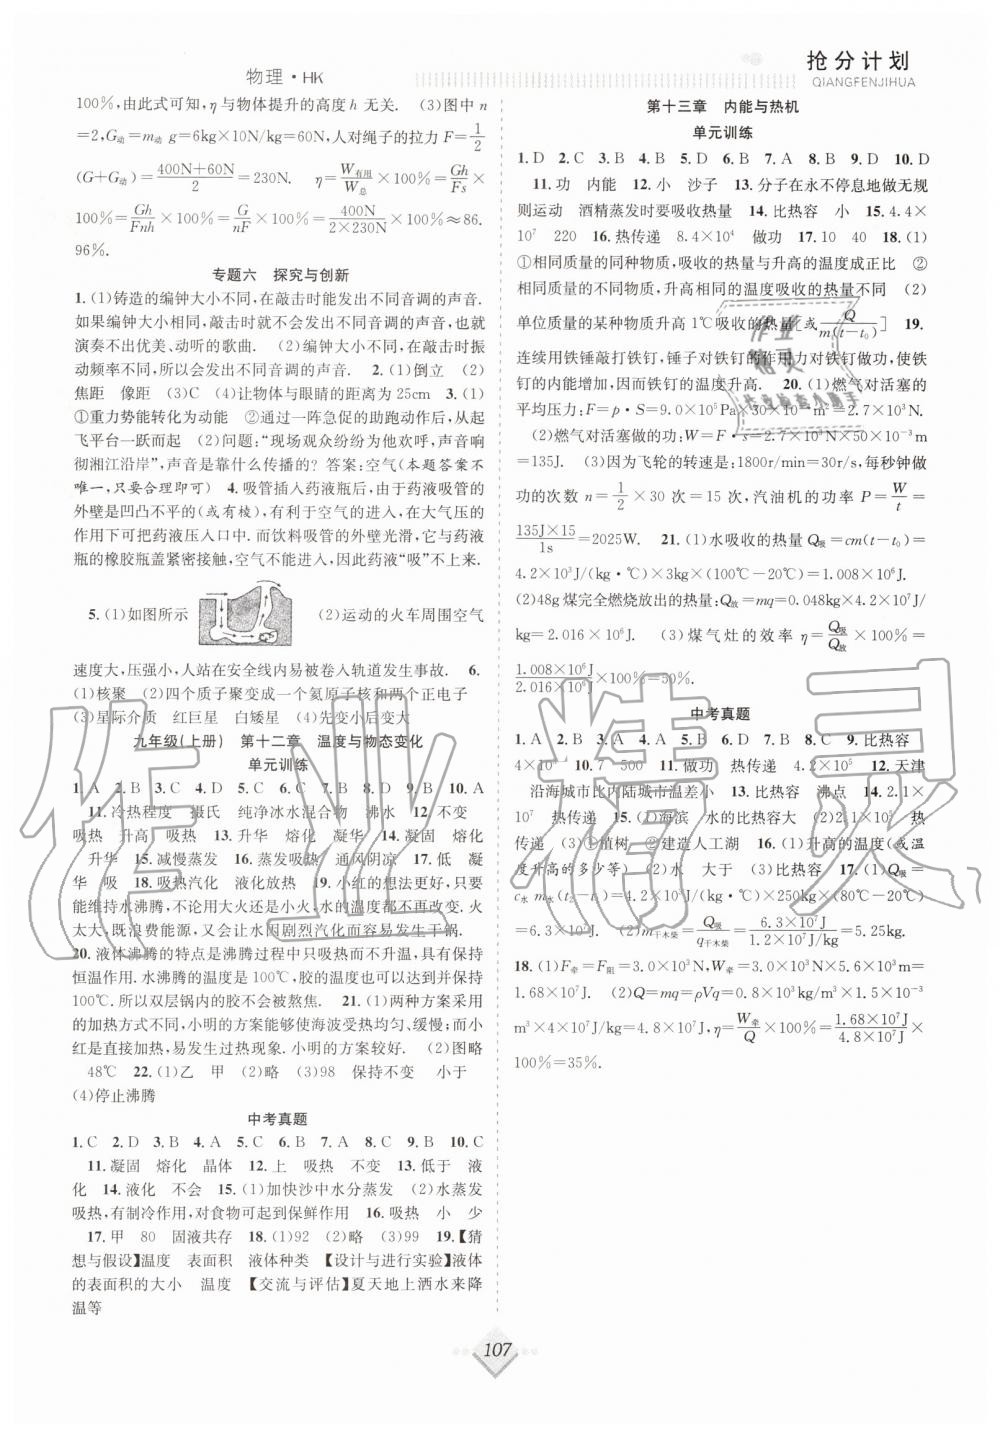 物理·HK
抢分计划
QIANGFENJIHUA
100%,由此式可知,η与物体提升的高度h无关. (3)图中n
=2,G动=m动 g=6kg×10N/kg=60N,人对绳子的拉力F=1/2
(G+G动)=(400N+60N)/2=230N. η=W有用/W总×100%=Gh/Fs×
100%=Gh/Fnh×100%=G/nF×100%=400N/(2×230N)×100%≈86.
96%.
专题六 探究与创新
1.(1)铸造的编钟大小不同,在敲击时能发出不同音调的声音.
如果编钟大小相同,敲击时就不会发出不同音调的声音,也就
演奏不出优美、动听的歌曲. (2)敲击不同的编钟时,由于振
动频率不同,所以会发出不同音调的声音. 2.(1)倒立 (2)
焦距 像距 (3)C (4)让物体与眼睛的距离为25cm 3.(1)
①重力势能转化为动能 ②通过一阵急促的助跑动作后,从起
飞平台一跃而起 (2)问题:“现场观众纷纷为他欢呼,声音响
彻湘江沿岸”,声音是靠什么传播的?答案:空气(本题答案不
唯一,只要合理即可) 4.吸管插入药液瓶后,由于药液吸管的
外壁是凹凸不平的(或有棱),有利于空气的进入,在大气压的
作用下可把药液压入口中.而饮料吸管的外壁光滑,它与药液
瓶的橡胶瓶盖紧密接触,空气不能进入,因此药液“吸”不上来.
5.(1)如图所示 (2)运动的火车周围空气
速度大,压强小,人站在安全线内易被卷入轨道发生事故. 6.
(1)核聚 (2)四个质子聚变成一个氦原子核和两个正电子
(3)星际介质 红巨星 白矮星 (4)先变小后变大
九年级(上册) 第十二章 温度与物态变化
单元训练
1.A 2.B 3.C 4.D 5.C 6.B 7.D 8.B 9.D 10.A
11.冷热程度 摄氏 纯净冰水混合物 沸水 12.不变
吸热 升高 吸热 13.升华 熔化 凝华 14.凝固 熔化
升华 15.减慢蒸发 16.蒸发吸热 通风阴凉 17.低 凝
华 吸 18.吸热汽化 液化放热 19.小红的想法更好,只要
能维持水沸腾,不管用大火还是小火,水的温度都不变.火
太大,既浪费能源,又会让水因剧烈汽化而容易发生干锅.
20.液体沸腾的特点是沸腾过程中只吸热而不升温,具有保持
恒温作用.水沸腾的温度是100℃,胶的温度也可以达到并保持
100℃.所以双层锅内的胶不会熬焦. 21.(1)两种方案采用
的加热方式不同,小明的方案能够使海波受热均匀、缓慢;而小
红是直接加热,易发生过热现象.小明的方案较好. (2)图略
48℃ 22.(1)乙 甲 (2)略 (3)98 保持不变 小于
(4)停止沸腾
中考真题
1.C 2.D 3.B 4.A 5.C 6.B 7.A 8.C 9.B 10.C
11.凝固 熔化 晶体 12.上 吸热 不变 13.低于 液
化 14.液化 不会 15.(1)加快沙中水分蒸发 (2)水蒸发
吸热,有制冷作用,对食物可起到保鲜作用 16.吸热 小 少
17.甲 80 固液共存 18.(1)92 (2)略 (3)99 19.【猜
想与假设】温度 表面积 液体种类 【设计与进行实验】液体
的表面积的大小 温度 【交流与评估】夏天地上洒水来降
温等
第十三章 内能与热机
单元训练
1.D 2.C 3.B 4.B 5.D 6.B 7.A 8.B 9.D 10.D
11.功 内能 12.小 沙子 13.分子在永不停息地做无规
则运动 酒精蒸发时要吸收热量 14.比热容 小 15.4.4×
10⁷ 220 16.热传递 8.4×10⁴ 做功 17.10 40 18.(1)
①相同质量的同种物质,吸收的热量与升高的温度成正比 ②
相同质量的不同物质,升高相同的温度吸收的热量不同 (2)
单位质量的某种物质升高1℃吸收的热量[或Q/m(t−t₀)] 19.
连续用铁锤敲打铁钉,锤子对铁钉的作用力对铁钉做功,使铁
钉的内能增加,因而铁钉的温度升高. 20.(1)燃气对活塞的
平均压力:F=p·S=9.0×10⁵Pa×30×10⁻⁴m²=2.7×10³N.
(2)燃气对活塞做的功:W=F·s=2.7×10³N×50×10⁻³m
=135J. (3)因为飞轮的转速是:1800r/min=30r/s,每秒钟做
功的次数n=1/2×30次=15次,汽油机的功率P=W/t=
135J×15/1s=2025W. 21.(1)水吸收的热量Q吸=cm(t−t₀)=
4.2×10³J/(kg·℃)×3kg×(100℃−20℃)=1.008×10⁶J.
(2)48g煤完全燃烧放出的热量:Q放=mq=0.048kg×4.2×10⁷J/
kg=2.016×10⁶J. (3)煤气灶的效率η=Q吸/Q放×100%=
1.008×10⁶J/2.016×10⁶J×100%=50%.
中考真题
1.A 2.A 3.B 4.D 5.B 6.D 7.B 8.C 9.比热容
4×10⁴ 10.7 500 11.做功 热传递 4.2×10⁵ 12.天津
沿海城市比内陆城市温差小 13.比热容 沸点 14.2.1×
10⁷ 热传递 15.(1)海滨 水的比热容大 (2)2.1×10⁵ 热
传递 (3)①植树 ②建造人工湖 16.(1)升高的温度(或温
度升高的多少等) (2)水 大于 (3)比热容 17.(1)Q吸=
c水 m水(t₂−t₁)=4.2×10³J/(kg·℃)×250kg×(80℃−20℃)
=6.3×10⁷J. (2)m干木柴=Q吸/q干木柴=6.3×10⁷J/1.2×10⁷J/kg=5.25kg.
18.(1)F牵=F阻=3.0×10³N,W牵=3.0×10³N×5.6×10³m=
1.68×10⁷J. (2)Q=mq=ρVq=0.8×10³kg/m³×1.5×10⁻³
m³×4×10⁷J/kg=4.8×10⁷J,η=W牵/Q×100%=1.68×10⁷J/4.8×10⁷J×
100%=35%.
107
作业精灵
作业
精灵